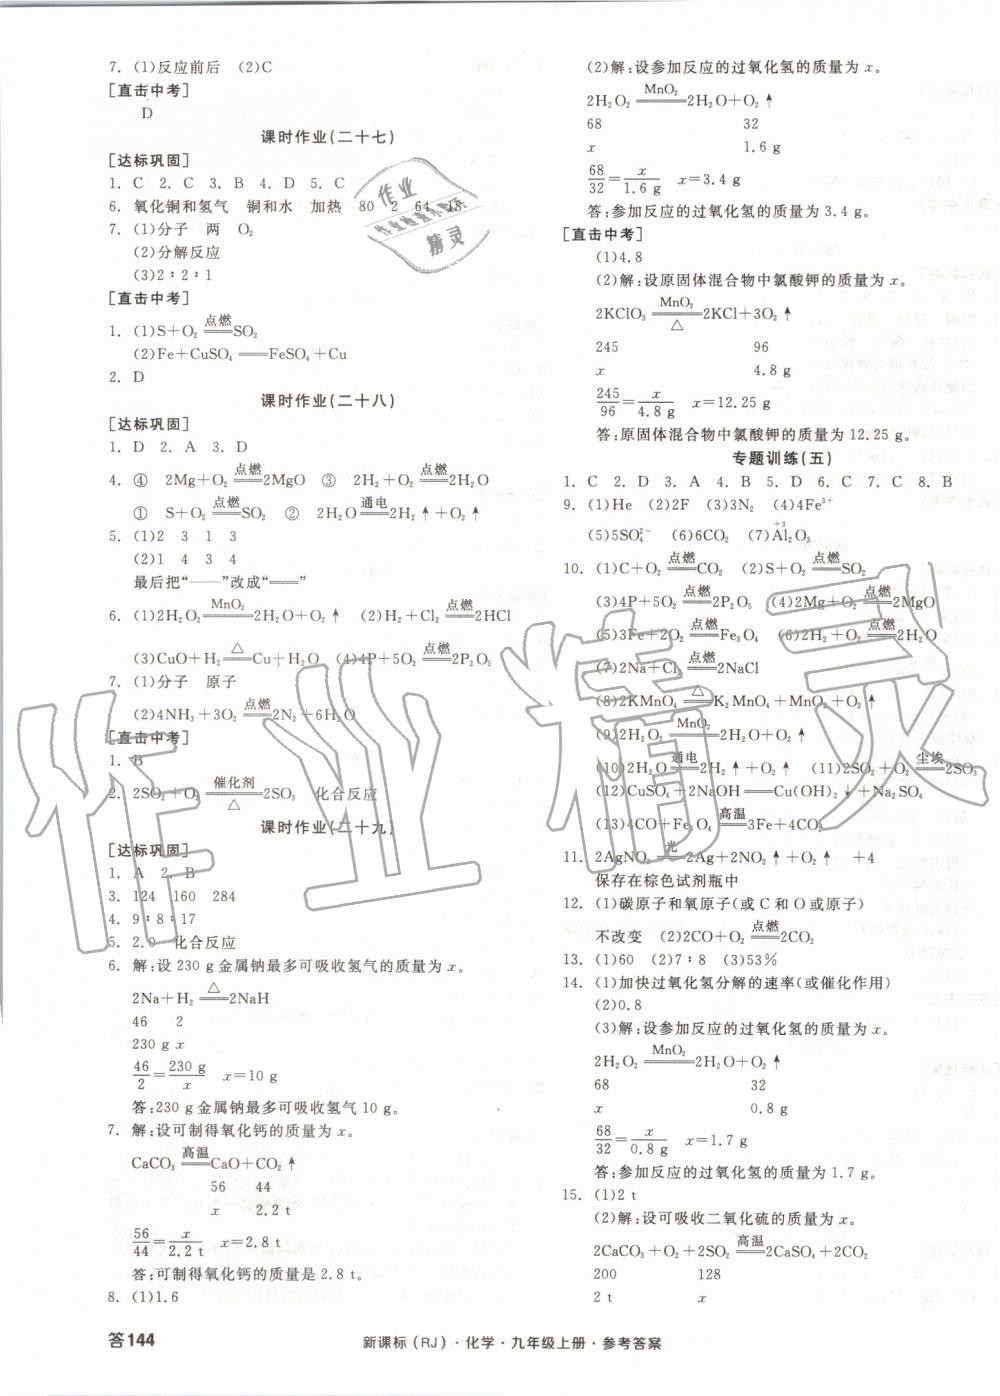 7. (1)反应前后 (2)C
[直击中考]
D
课时作业(二十七)
[达标巩固]
1. C 2. C 3. B 4. D 5. C
6. 氧化铜和氢气 铜和水 加热 80 2 64 18
7. (1)分子 两 O₂
(2)分解反应
(3)2∶2∶1
[直击中考]
1. (1)S+O₂ =点燃= SO₂
(2)Fe+CuSO₄ == FeSO₄+Cu
2. D
课时作业(二十八)
[达标巩固]
1. D 2. A 3. D
4. ④ 2Mg+O₂ =点燃= 2MgO ③ 2H₂+O₂ =点燃= 2H₂O
① S+O₂ =点燃= SO₂ ② 2H₂O =通电= 2H₂↑+O₂↑
5. (1)2 3 1 3
(2)1 4 3 4
最后把“——”改成“══”
6. (1)2H₂O₂ =MnO₂= 2H₂O+O₂↑ (2)H₂+Cl₂ =点燃= 2HCl
(3)CuO+H₂ =△= Cu+H₂O (4)4P+5O₂ =点燃= 2P₂O₅
7. (1)分子 原子
(2)4NH₃+3O₂ =点燃= 2N₂+6H₂O
[直击中考]
1. B
2. 2SO₂+O₂ =催化剂/△= 2SO₃ 化合反应
课时作业(二十九)
[达标巩固]
1. A 2. B
3. 124 160 284
4. 9∶8∶17
5. 2.0 化合反应
6. 解:设230 g金属钠最多可吸收氢气的质量为x。
2Na+H₂ =△= 2NaH
46 2
230 g x
46/2=230 g/x x=10 g
答:230 g金属钠最多可吸收氢气10 g。
7. 解:设可制得氧化钙的质量为x。
CaCO₃ =高温= CaO+CO₂↑
56 44
x 2.2 t
56/44=x/2.2 t x=2.8 t
答:可制得氧化钙的质量是2.8 t。
8. (1)1.6
(2)解:设参加反应的过氧化氢的质量为x。
2H₂O₂ =MnO₂= 2H₂O+O₂↑
68 32
x 1.6 g
68/32=x/1.6 g x=3.4 g
答:参加反应的过氧化氢的质量为3.4 g。
[直击中考]
(1)4.8
(2)解:设原固体混合物中氯酸钾的质量为x。
2KClO₃ =MnO₂/△= 2KCl+3O₂↑
245 96
x 4.8 g
245/96=x/4.8 g x=12.25 g
答:原固体混合物中氯酸钾的质量为12.25 g。
专题训练(五)
1. C 2. D 3. A 4. B 5. D 6. C 7. C 8. B
9. (1)He (2)2F (3)3N₂ (4)4Fe³⁺
(5)5SO₄²⁻ (6)6CO₂ (7)Al₂O₃ (Al上方+3)
10. (1)C+O₂ =点燃= CO₂ (2)S+O₂ =点燃= SO₂
(3)4P+5O₂ =点燃= 2P₂O₅ (4)2Mg+O₂ =点燃= 2MgO
(5)3Fe+2O₂ =点燃= Fe₃O₄ (6)2H₂+O₂ =点燃= 2H₂O
(7)2Na+Cl₂ =点燃= 2NaCl
(8)2KMnO₄ =△= K₂MnO₄+MnO₂+O₂↑
(9)2H₂O₂ =MnO₂= 2H₂O+O₂↑
(10)2H₂O =通电= 2H₂↑+O₂↑ (11)2SO₂+O₂ =尘埃= 2SO₃
(12)CuSO₄+2NaOH == Cu(OH)₂↓+Na₂SO₄
(13)4CO+Fe₃O₄ =高温= 3Fe+4CO₂
11. 2AgNO₃ =光= 2Ag+2NO₂↑+O₂↑ +4
保存在棕色试剂瓶中
12. (1)碳原子和氧原子(或C和O或原子)
不改变 (2)2CO+O₂ =点燃= 2CO₂
13. (1)60 (2)7∶8 (3)53%
14. (1)加快过氧化氢分解的速率(或催化作用)
(2)0.8
(3)解:设参加反应的过氧化氢的质量为x。
2H₂O₂ =MnO₂= 2H₂O+O₂↑
68 32
x 0.8 g
68/32=x/0.8 g x=1.7 g
答:参加反应的过氧化氢的质量为1.7 g。
15. (1)2 t
(2)解:设可吸收二氧化硫的质量为x。
2CaCO₃+O₂+2SO₂ =高温= 2CaSO₄+2CO₂
200 128
2 t x
答144
新课标(RJ)·化学·九年级上册·参考答案
作业精灵